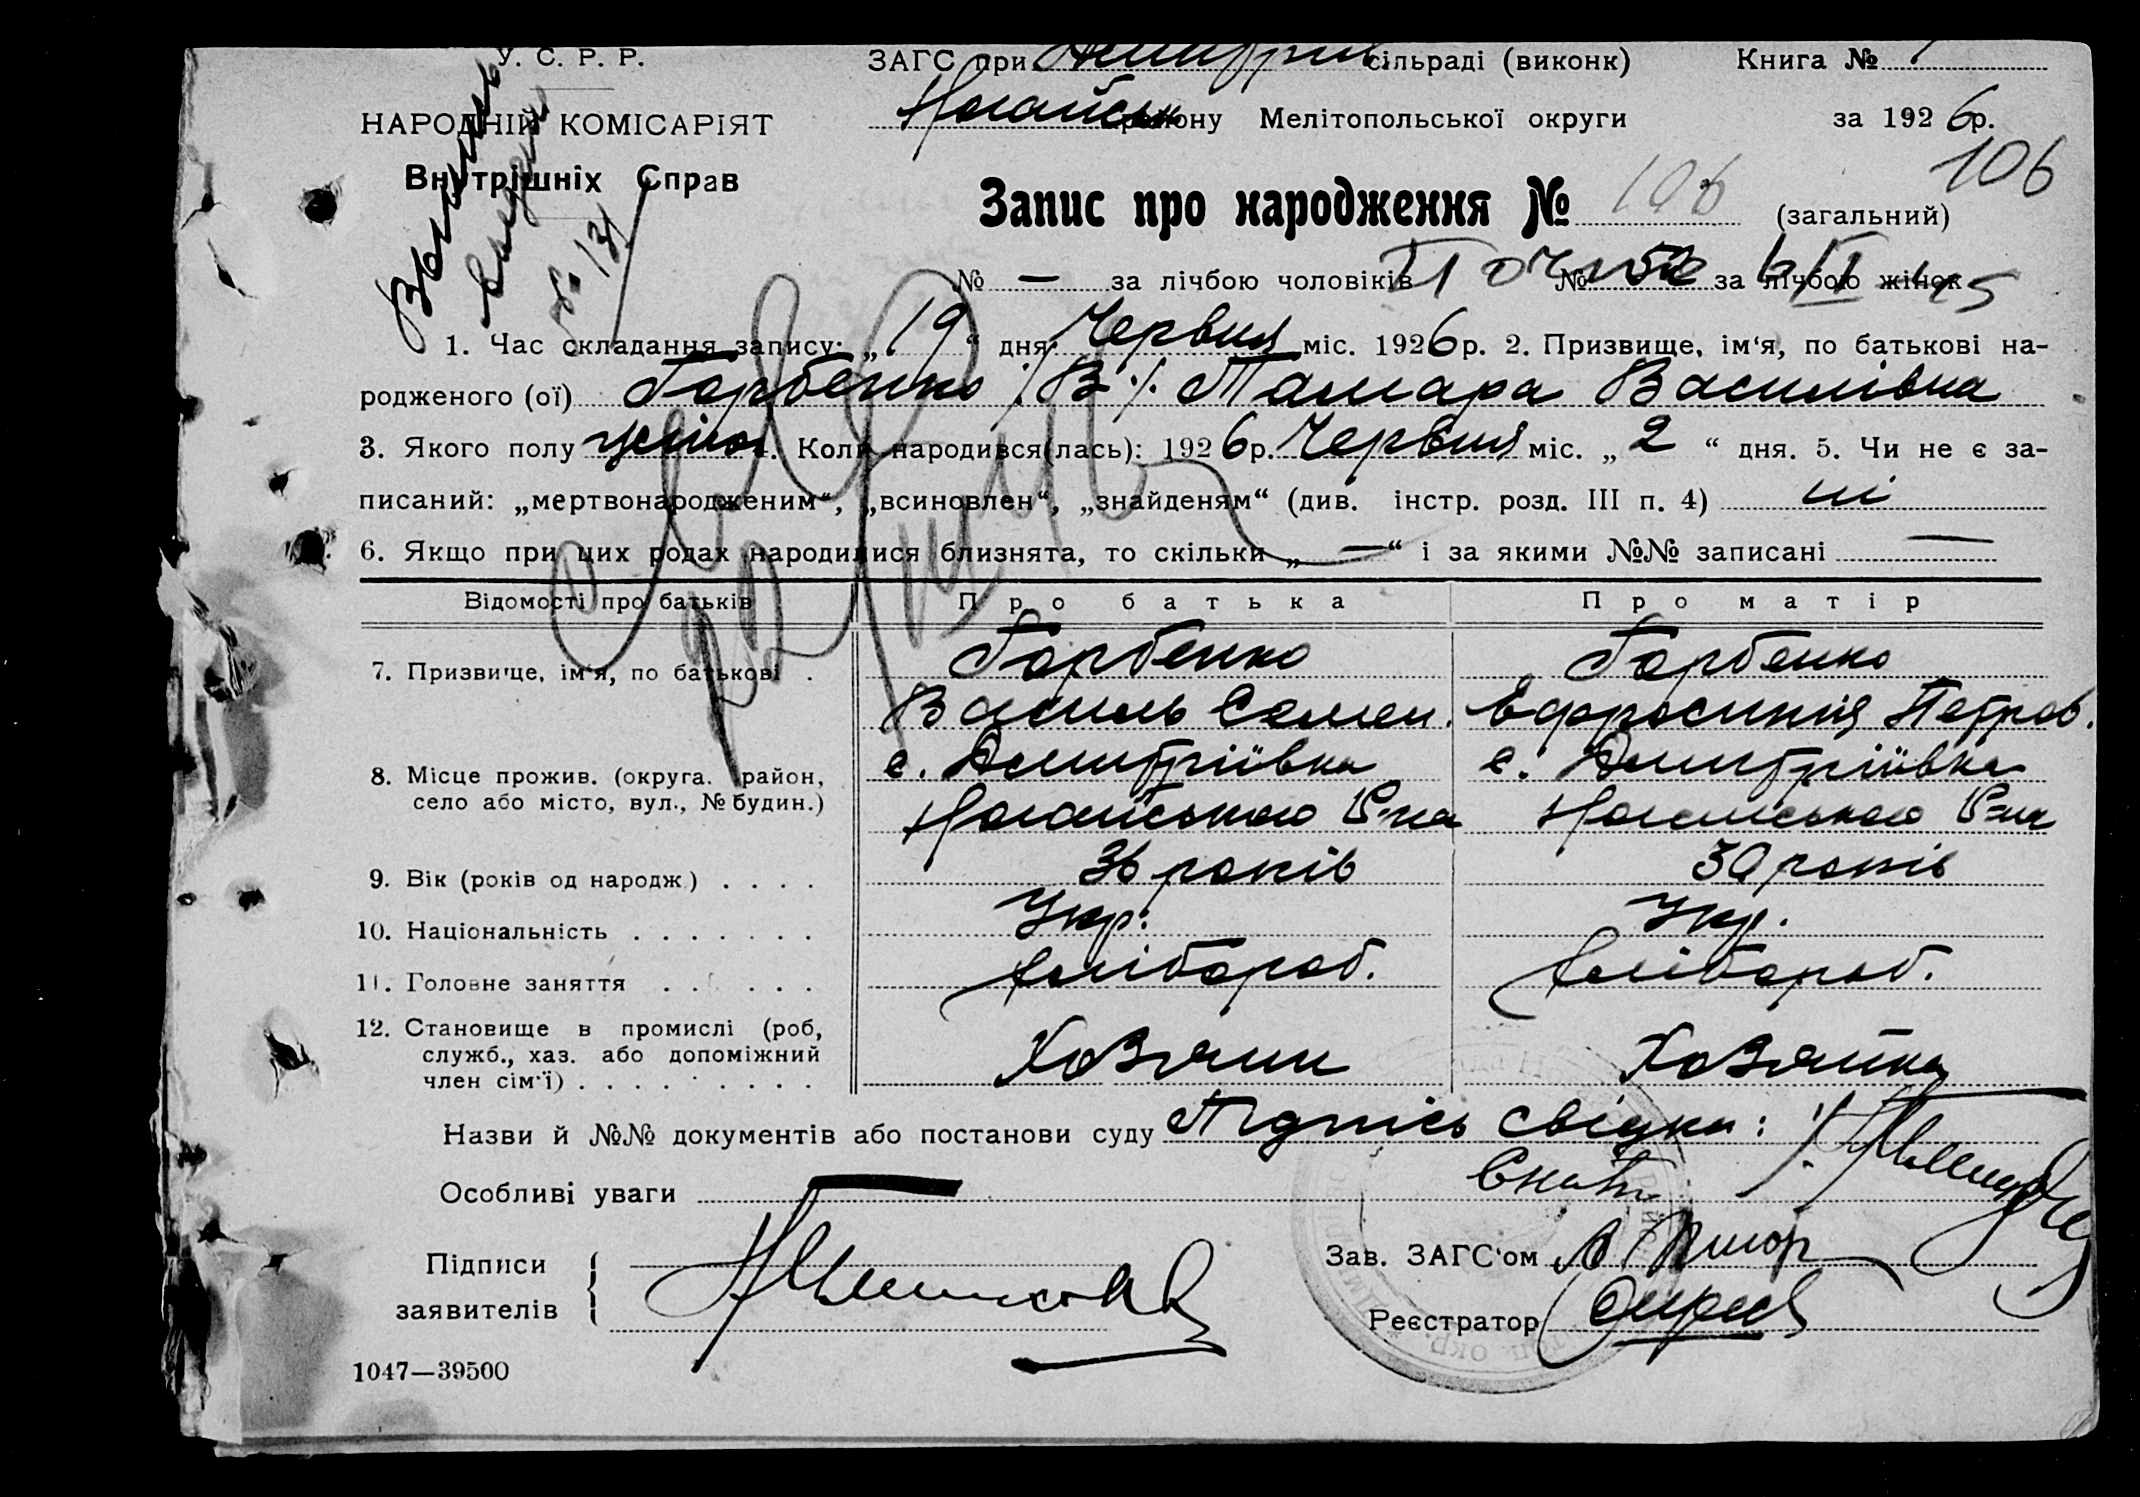 У. С. Р. Р.
НАРОДНІЙ КОМІСАРІЯТ
Внутрішніх Справ
ЗАГС при сільраді (виконк) Книга №
району Мелітопольської округи за 1926р.
106
Запис про народження № 106 (загальний)
№ — за лічбою чоловіків № за лічбою жінок
1. Час складання запису: „19“ дня Червня міс. 1926р. 2. Призвище, ім‘я, по батькові на-
родженого (ої) Горбенко /В./ Тамара Василівна
3. Якого полу жіно 4. Коли народився(лась): 1926р. Червня міс. „2“ дня. 5. Чи не є за-
писаний: „мертвонародженим“, „всиновлен“, „знайденям“ (див. інстр. розд. III п. 4) ні
6. Якщо при цих родах народилися близнята, то скільки „—“ і за якими №№ записані —
Відомості про батьків Про батька Про матір
7. Призвище, ім‘я, по батькові . Горбенко Горбенко
Василь Семен. Ефросинія Петров.
8. Місце прожив. (округа. район, с. Дмитріївка с. Дмитріївка
село або місто, вул., № будин.) Ногайського Р-на Ногайського Р-на
9. Вік (років од народж) . . . . 36 років 30 років
10. Національність . . . . . . . Укр. Укр.
11. Головне заняття . . . . . . хлібороб. хлібороб.
12. Становище в промислі (роб,
служб., хаз. або допоміжний Хозяин Хозяйка
член сім‘ї) . . . . . . . . .
Назви й №№ документів або постанови суду Підпись свідка:
Особливі уваги —
Підписи
заявителів
Зав. ЗАГС‘ом
Реєстратор
1047—39500